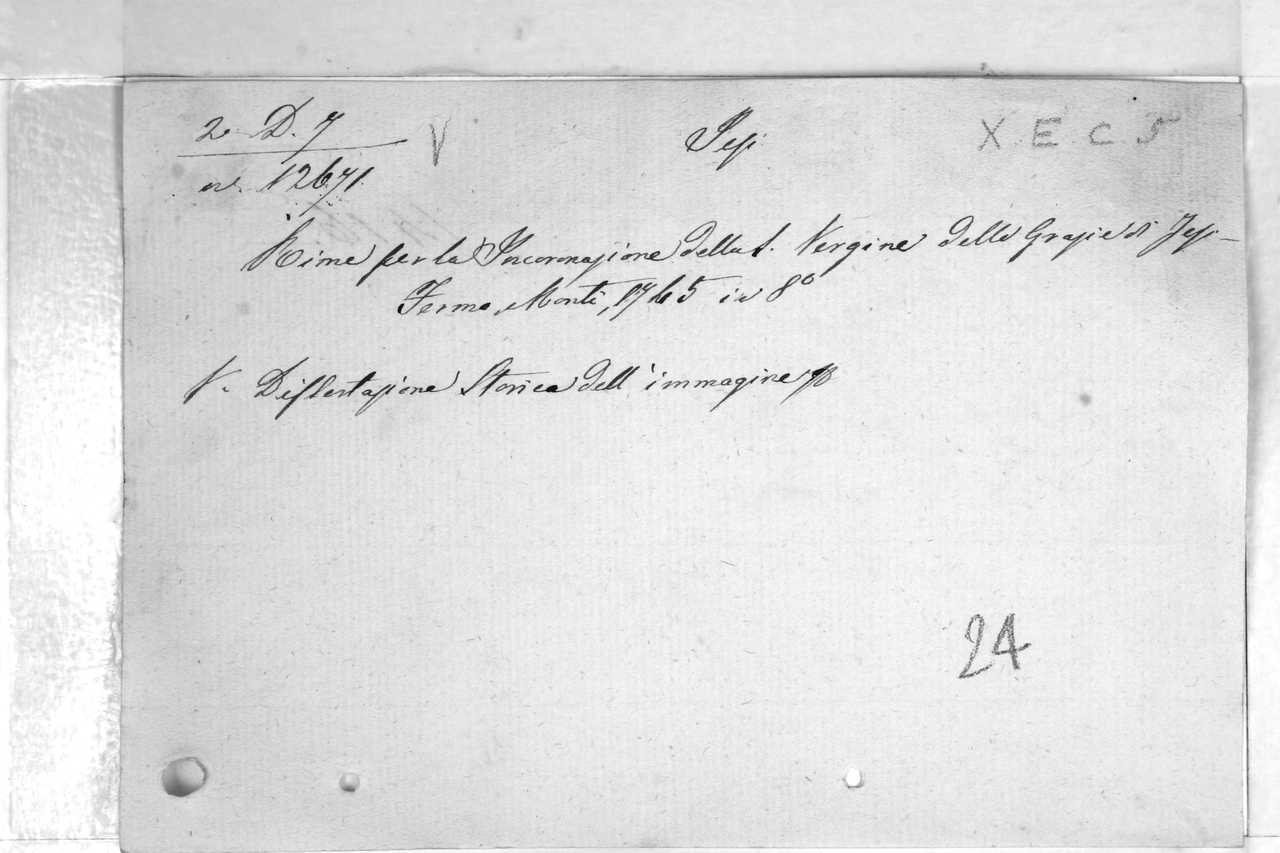 2. D. 7
V
Jesi
X E C 5
n. 12671
Rime per la Incoronazione della S. Vergine delle Grazie di Jesi -
Fermo, Monti, 1765 in 8°
V. Dissertazione Storica dell' immagine
24